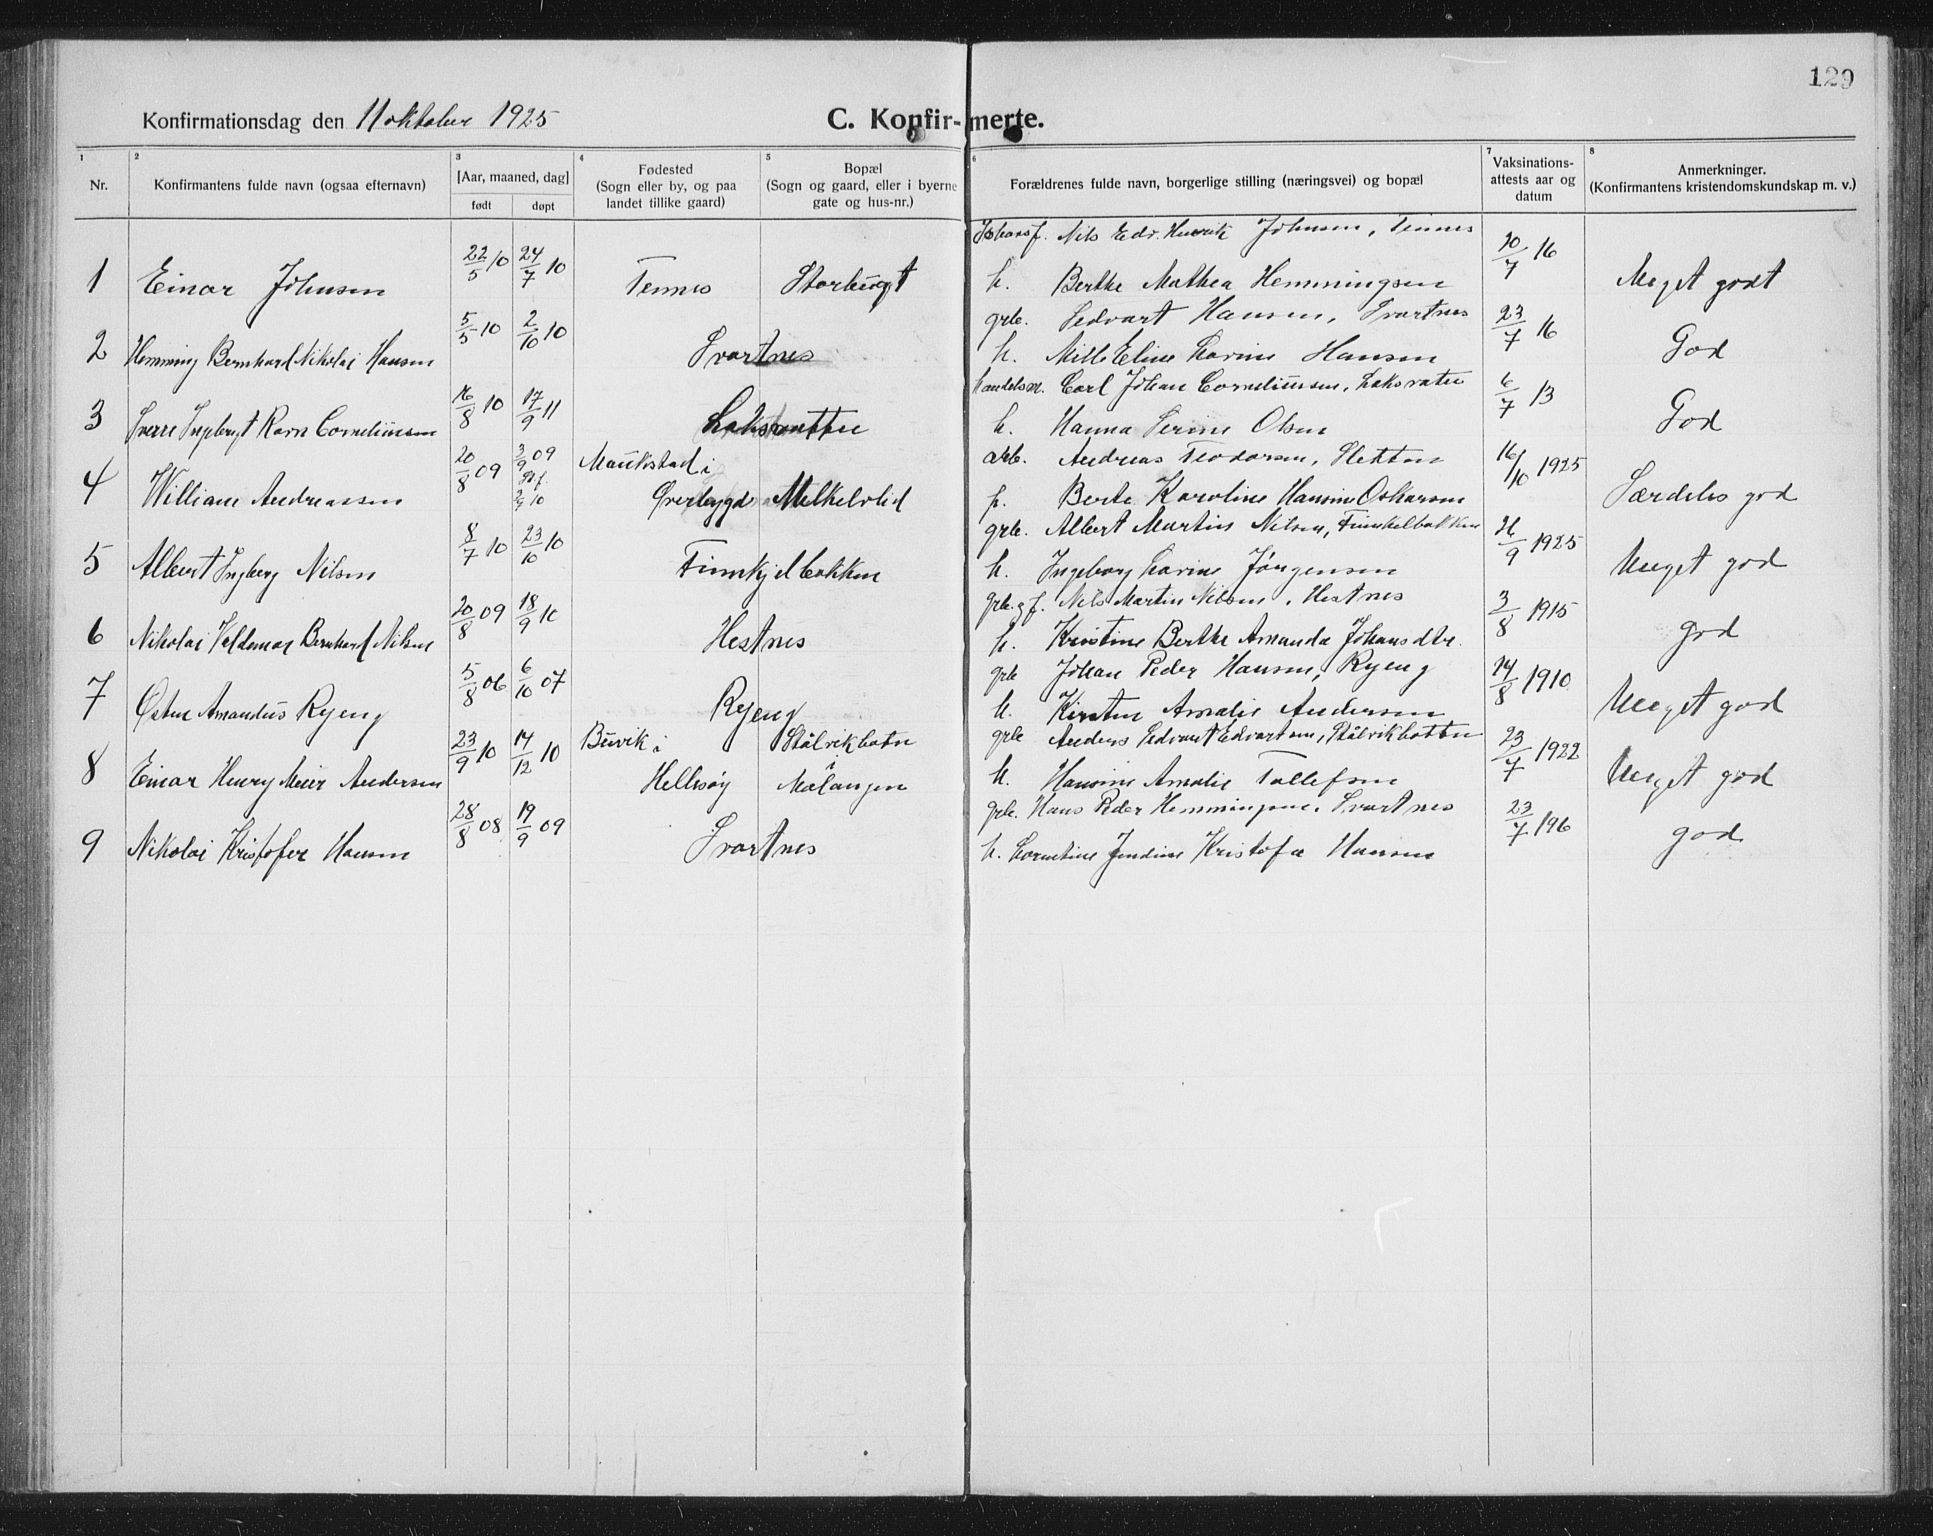 129
Konfirmationsdag den 11 oktober 1925
C. Konfir-merte.
1 2 3 4 5 6 7 8
Nr.
Konfirmantens fulde navn (ogsaa efternavn)
[Aar, maaned, dag]
født døpt
Fødested
(Sogn eller by, og paa
landet tillike gaard)
Bopæl
(Sogn og gaard, eller i byerne
gate og hus-nr.)
Forældrenes fulde navn, borgerlige stilling (næringsvei) og bopæl
Vaksinations-
attests aar og
datum
Anmerkninger.
(Konfirmantens kristendomskundskap m. v.)
Nils Edv. Henrik Johnsen, Tennes
1 Einar Johnsen 22/5 10 24/7 10 Tennes Storbugt h. Berthe Mathea Hemmingsen 20/7 16 Meget godt
grb. Sedvart Hansen, Svartnes
2 Hemming Bernhard Nikolai Hansen 5/5 10 2/10 10 Svartnes h. Eline Larine Hansen 23/7 16 God
Handelsm. Carl Johan Corneliussen, Laksvatn
3 Sverre Ingebrigt Ravn Corneliussen 16/8 10 17/9 11 Laksvatn h. Hanna Serine Olsen 6/7 13 God
arb. Andreas Teodorsen, Sletten
4 William Andreassen 20/8 09 3/9 09 Maukstad i
Øverbygd Melkelvlid h. Berte Karoline Hansine Oskarsen 16/10 1925 Særdeles god
grb. Albert Martin Nilsen, Finnkelbakken
5 Albert Ingberg Nilsen 8/7 10 23/10 10 Finnkjelbakken h. Ingeborg Larine Jørgensen 26/9 1925 Meget god
grb. og f. Nils Martin Nilsen, Hestnes
6 Nikolai Veldemar Bernhard Nilsen 20/8 09 18/9 10 Hestnes h. Kristine Berthe Amanda Johansdtr. 3/8 1915 god
grb Johan Peder Hansen, Ryeng
7 Østen Amandus Ryeng 5/8 06 6/10 07 Ryeng h. Kirsten Amalie Andersen 14/8 1910 Meget god
grb Anders Edvart Edvartsen, Stålvikbotn
8 Einar Henry Meier Andersen 23/9 10 14/12 10 Buvik i
Hellesøy Stålvikbotn
i
Målangen h. Hansine Amalie Tollefsen 23/7 1922 Meget god
grb. Hans Peder Hemmingsen, Svartnes
9 Nikolai Kristofer Hansen 28/8 08 19/9 09 Svartnes h. Cornetine Jendine Kristofa Hansen 23/7 196 god